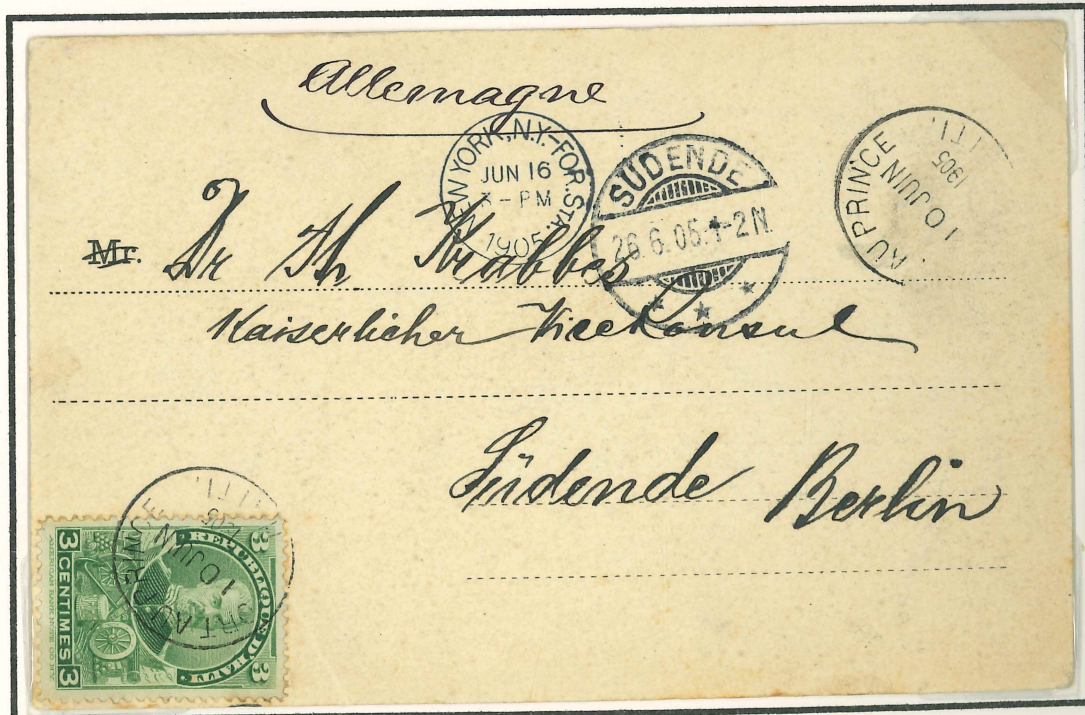 Allemagne
NEW YORK, N.Y.-FOR. STA.
JUN 16
- PM
1905
SÜDENDE
26.6.05. 1-2N.
AU PRINCE
TI.
10 JUIN
1905
Mr. Dr Th Krabbes
Kaiserlicher Vicekonsul
Südende Berlin
PORT AU PRINCE
HAITI.
10 JUIN
3 REPUBLIQUE D'HAITI 3
3 CENTIMES 3
AMERICAN BANK NOTE CO. N.Y.